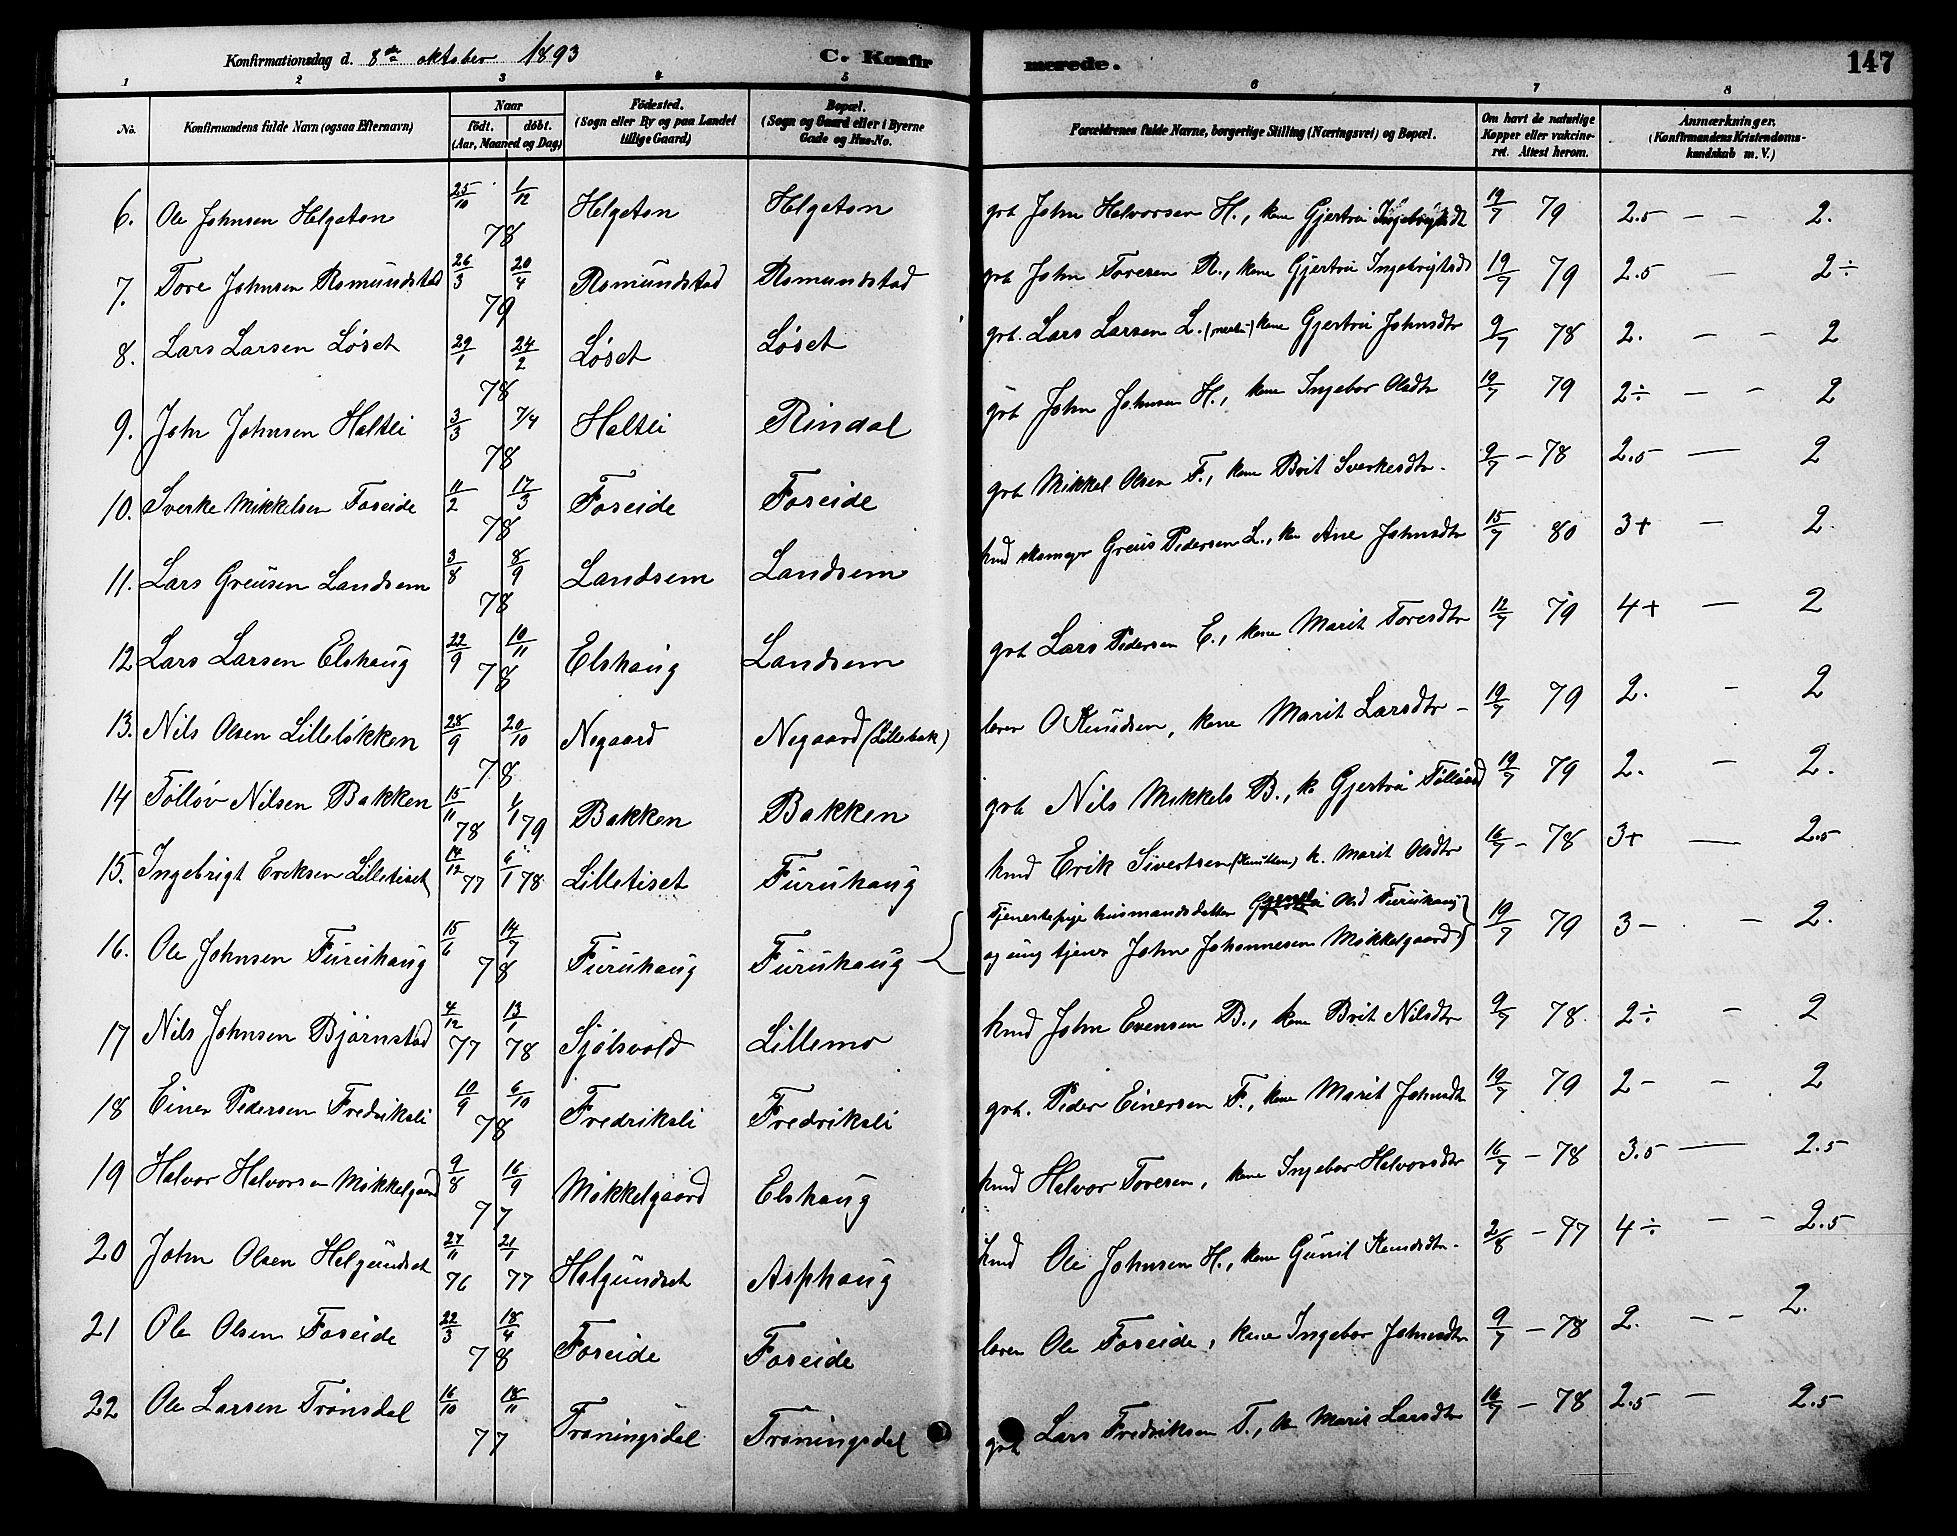 Konfirmationsdag d. 8de oktober 1893 C. Konfirmerede. 147
1 2 3 4 5 6 7 8
No. Konfirmandens fulde Navn (ogsaa Efternavn) Naar födt. döbt. (Aar, Maaned og Dag) Födested. (Sogn eller By og paa Landet tillige Gaard) Bopæl. (Sogn og Gaard eller i Byerne Gade og Hus-No. Forældrenes fulde Navne, borgerlige Stilling (Næringsvei) og Bopæl. Om havt de naturlige Kopper eller vakcineret. Attest herom. Anmærkninger. (Konfirmandens Kristendomskundskab m. V.)
6. Ole Johnsen Helgeton 25/10 1/12 78 Helgeton Helgeton grb John Halvorsen H., kone Gjertru Ingebrigtsdt 19/7 79 2.5 - - 2.
7. Tore Johnsen Romundstad 26/3 20/4 79 Romundstad Romundstad grb John Toresen R., kone Gjertru Ingebrigtsdt 19/7 79 2.5 - 2÷
8. Lars Larsen Løset 29/1 24/2 78 Løset Løset grb. Lars Larsen L. kone Gjertru Johnsdtr 9/7 78 2. - - 2
9. John Johnsen Haltli 3/3 7/4 78 Haltli Rindal grb John Johnsen H., kone Ingebor Olsdtr 19/7 79 2÷ - - 2
10. Sverke Mikkelsen Foseide 11/2 17/3 78 Foseide Foseide grb Mikkel Olsen F., kone Brit Sverkesdtr. 9/7 - 78 2.5 - 2
11. Lars Greusen Landsem 3/8 8/9 78 Landsem Landsem hmd skomager Greus Pedersen L., ko Ane Johnsdtr 15/7 80 3+ - 2.
12 Lars Larsen Elshaug 22/9 10/11 78 Elshaug Landsem grb Lars Pedersen E., kone Marit Toresdtr 12/7 79 4+ - 2
13. Nils Olsen Lilleløkken 28/9 20/10 78 Negaard Negaard (Lillebak) lærer O Knudsen, kone Marit Larsdtr - 19/7 79 2. - 2
14 Tølløv Nilsen Bakken 15/11 78 1/1 79 Bakken Bakken grb Nils Mikkels B., k. Gjertru Tølløvsd 19/7 79 2. - 2.
15. Ingebrigt Eriksen Lilletiset 14/12 77 6/1 78 Lilletiset Furuhaug hmd Erik Sivertsen k. Marit Olsdtr 16/7 - 78 3+ - 2.5
16. Ole Johnsen Furuhaug 15/6 14/7 78 Furuhaug Furuhaug { Tjenestepige husmandsdatter Olsd Furuhaug
og ung tjener John Johannesen Møkkelgaard } 19/7 79 3- - 2.
17 Nils Johnsen Bjørnstad 4/12 77 13/1 78 Sjølsvold Lillemo hmd John Evensen B., kone Brit Nilsdtr 9/7 78. 2÷ - 2
18 Einer Pedersen Fredriksli 10/9 6/10 78 Fredriksli Fredriksli grb. Peder Einersen F., kone Marit Johnsdt 19/7 79 2- - 2
19 Halvor Halvorsen Møkkelgaard 9/8 16/9 77 Møkkelgaard Elshaug hmd Halvor Toresen, kone Ingebor Halvorsdtr 16/7 - 78 3.5 - 2.5
20 John Olsen Helgundset 27/11 76 21/1 77 Helgundset Asphaug hmd Ole Johnsen H., kone Gunil Knudsdtr. 2/8 - 77 4÷ - - 2.5
21 Ole Olsen Foseide 22/3 18/4 78 Foseide Foseide lærer Ole Foseide, kone Ingebor Johnsdtr 9/7 - 78 2. - - 2.
22 Ole Larsen Trønsdal 16/10 18/11 77 Trøningsdal Trøningsdal grb Lars Fredriksen T., k. Marit Larsdtr 16/7 - 78 2.5 - 2.5